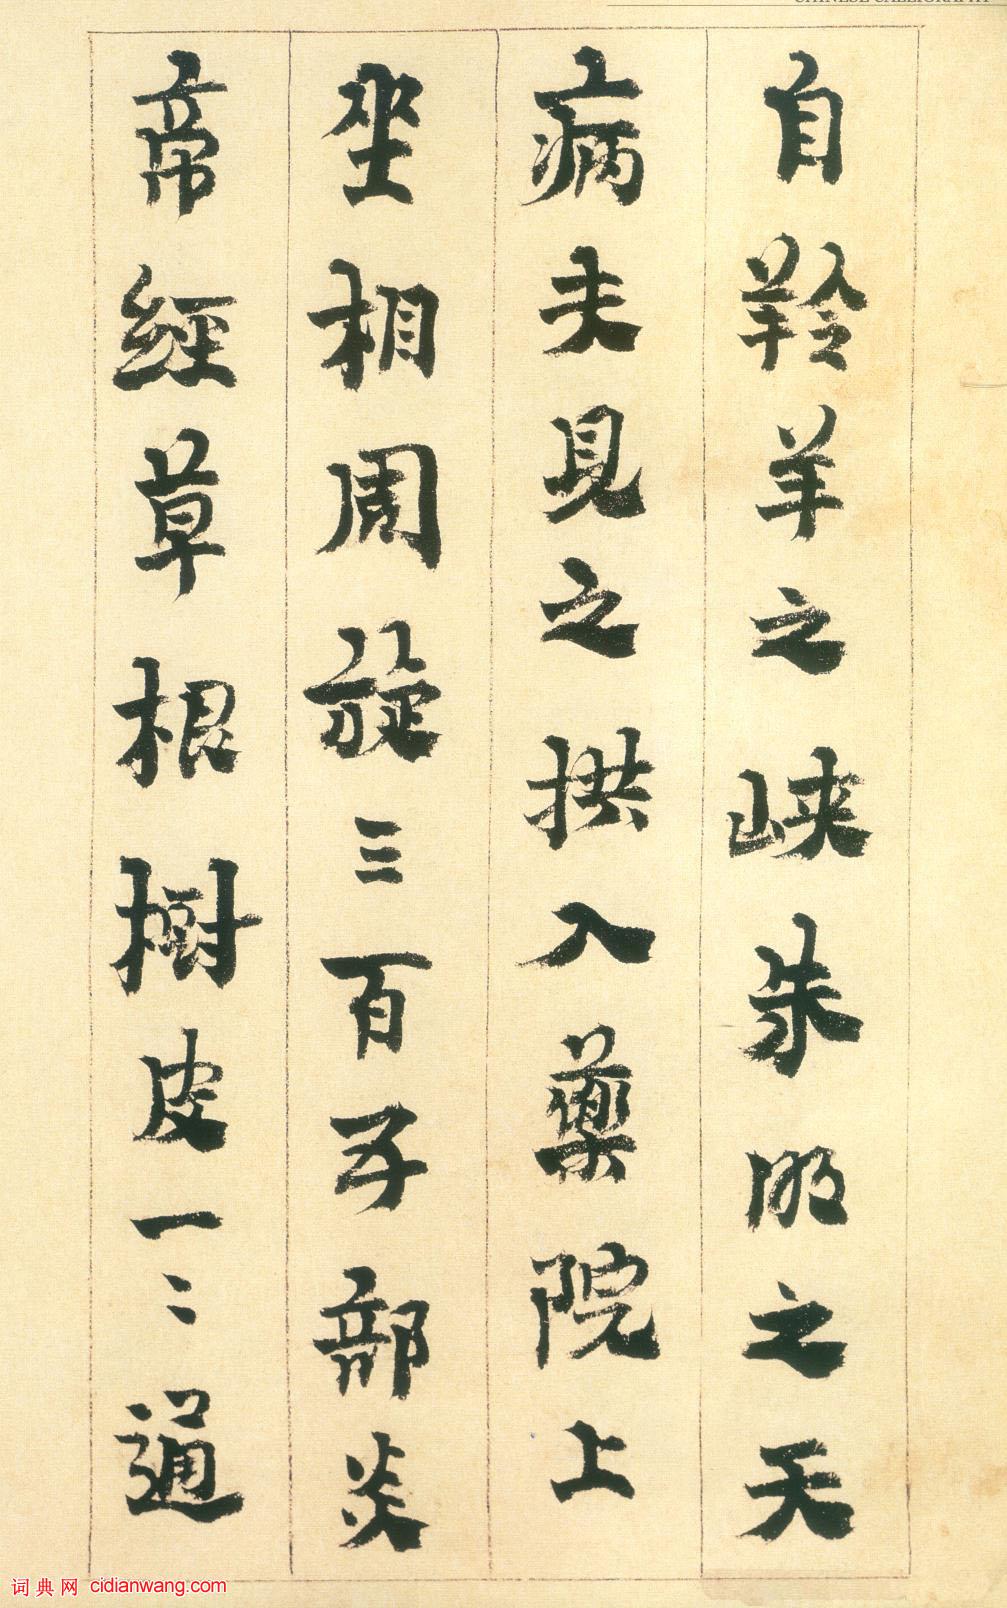 CHINESE CALLIGRAPHY
自羚羊之峽朱明之天
病夫見之拱入藥院上
坐相周旋三百子部炎
帝經草根樹皮一〻通
词典网 cidianwang.com